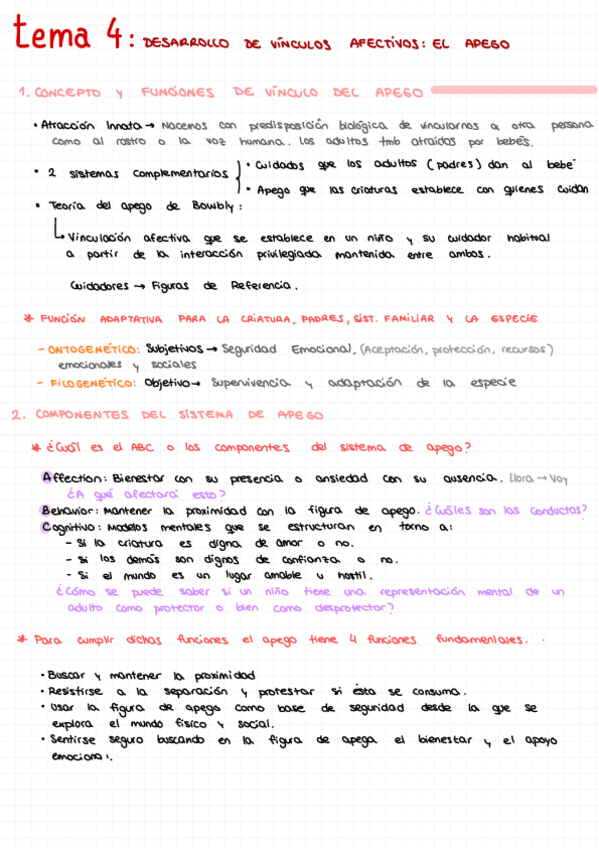 tema 4: DESARROLLO DE VÍNCULOS AFECTIVOS: EL APEGO
1. CONCEPTO Y FUNCIONES DE VÍNCULO DEL APEGO
• Atracción Innata → Nacemos con predisposición biológica de vincularnos a otra persona
como al rostro o la voz humana. Los adultos tmb atraídos por bebés.
• 2 sistemas complementarios
• Cuidados que los adultos (padres) dan al bebé
• Apego que las criaturas establece con quienes cuidan
• Teoría del apego de Bowbly:
Vinculación afectiva que se establece en un niño y su cuidador habitual
a partir de la interacción privilegiada mantenida entre ambos.
Cuidadores → Figuras de Referencia.
* FUNCIÓN ADAPTATIVA PARA LA CRIATURA, PADRES, SIST. FAMILIAR Y LA ESPECIE
- ONTOGENÉTICO: Subjetivos → Seguridad Emocional, (Aceptación, protección, recursos)
emocionales y sociales
- FILOGENÉTICO: Objetivo → Supervivencia y adaptación de la especie
2. COMPONENTES DEL SISTEMA DE APEGO
* ¿Cuál es el ABC o los componentes del sistema de apego?
Affection: Bienestar con su presencia o ansiedad con su ausencia. Llora → Voy
¿A qué afectará esto?
Behavior: Mantener la proximidad con la figura de apego. ¿Cuáles son las conductas?
Cognitivo: Modelos mentales que se estructuran en torno a:
- Si la criatura es digna de amor o no.
- Si los demás son dignos de confianza o no.
- Si el mundo es un lugar amable u hostil.
¿Cómo se puede saber si un niño tiene una representación mental de un
adulto como protector o bien como desprotector?
* Para cumplir dichas funciones el apego tiene 4 funciones fundamentales.
• Buscar y mantener la proximidad
• Resistirse a la separación y protestar si ésta se consuma.
• Usar la figura de apego como base de seguridad desde la que se
explora el mundo físico y social.
• Sentirse seguro buscando en la figura de apega el bienestar y el apoyo
emocional.